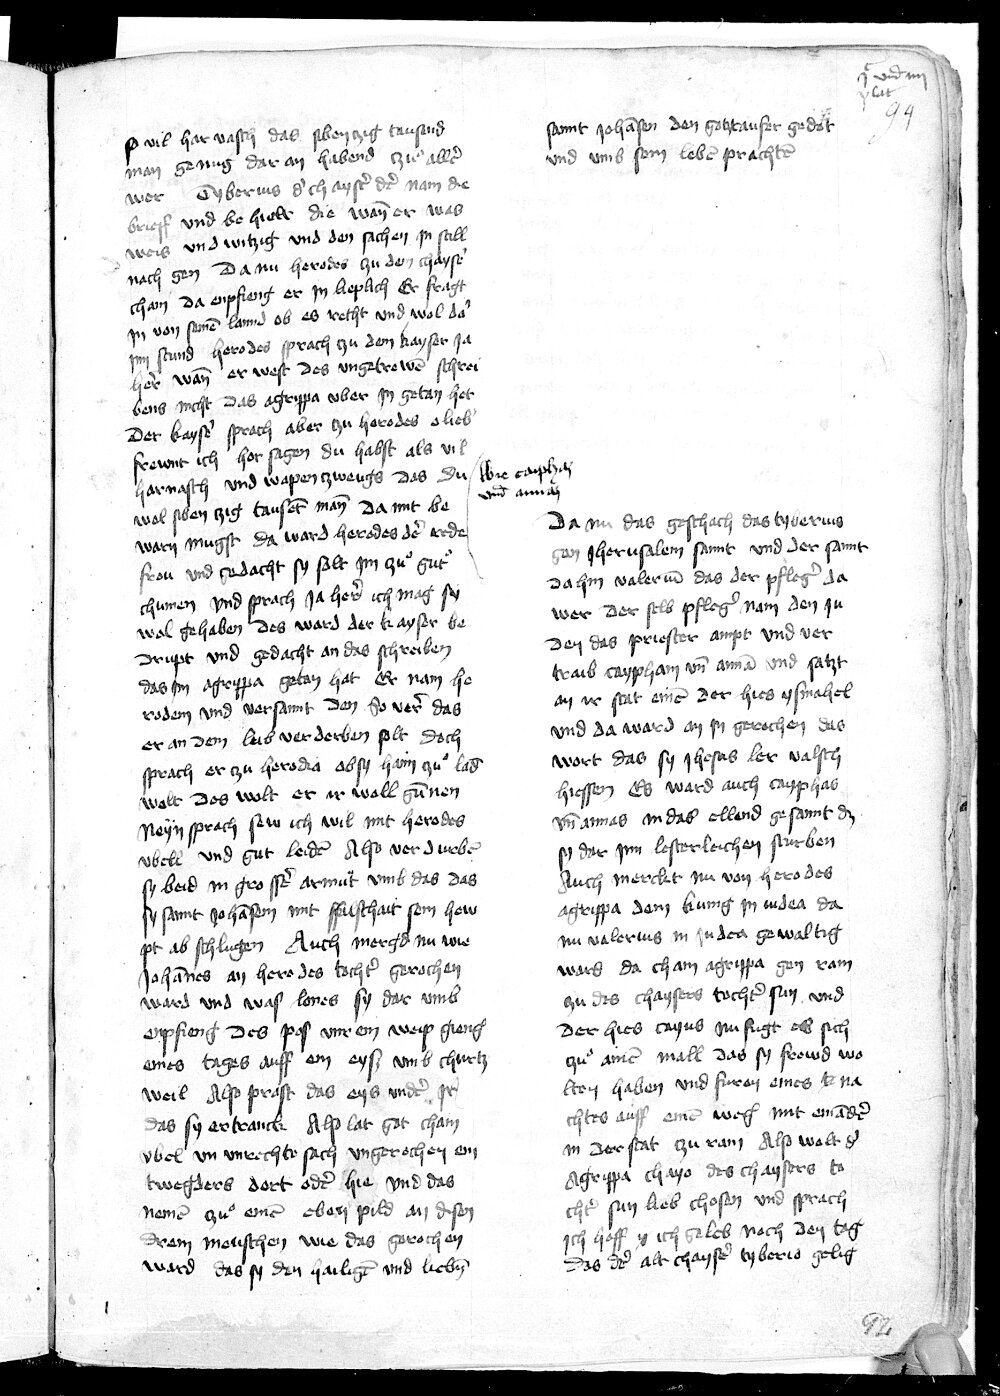 94
so vil harnasch das sibentzig tausend
man genug dar an habend tzu aller
wer Tyberius der chayser der nam die
brieff und behielt die wann er was
weis und witzig und den sachen in still
nach gen Da nu herodes tzu dem chayser
cham da enpfieng er in lieplich Er fragt
in von seinem lannd ob es recht und wol dar
inn stund herodes sprach tzu dem kayser Ja
herr wann er west des ungetrewen schrei
bens nicht das agrippa uber in getan het
Der kayser sprach aber tzu herodes o lieber
frewnt ich hor sagen du habst als vil
harnasch und wapen tzwengs das du
wol sibentzig tausent man damit be
warn mugst da ward herodes der rede
fro und gedacht sy solt im tzu gut
chumen und sprach Ja herr ich mag sy
wol gehaben Des ward der kayser be
drupt und gedacht an das schreiben
das im agrippa getan hat Er nam he
rodem und versannt den so verr das
er an dem leib verderben solt doch
sprach er tzu herodia ob sy haim tzu land
wolt des wolt er ir woll gunnen
Neyn sprach sew ich wil mit herodes
ubell und gut leiden Also verdurben
sy beid in grosser armut umb das das
sy sannt Johansem mit falschait sein hew
pt ab schlugen Auch mergd nu wie
Johannes an herodes tochter gerochen
ward und was lones sy dar umb
enpfieng Des pos unrein weip gieng
eines tages auff ein eyss umb churtz
weil Also prast das eys under ir
das sy ertranck Also lat got chain
ubel un unrechte sach ungerochen ein
twegders dort oder hie und das
nemen tzu einem eben pild an disen
drein menschen wie das gerochen
ward das sy den hailigen und lieben
sannt Johansen den gotztaufer gedot
und umb sein leben prachten
Wie cayphas
und annas
Da nu das geschach das tyberius
gen Jherusalem sannt und der sannt
dahin valerium das der pfleger da
wer Der selb pfleger nam den Ju
den das priester ampt und ver
traib caypham und annam und satzt
an ir stat einen der hies ysmahel
und da ward an in gerochen das
wort das sy Jhesus ler valsch
hiessen Es ward auch cayphas
und annas in das ellend gesannt das
sy dar inn lesterleichen sturben
Auch merckt nu von herodes
agrippa dem kunig in iudea da
nu valerius in Judea gewaltig
ward da cham agrippa gen rom
tzu des chaysers tochter sun und
der hies cayus nu fugt es sich
tzu ainem mall das sy frewd wo
lten haben und furen eines te na
chtes auff einem weg mit einander
in der stat tzu ram Also wolt der
Agrippa chayo des chaysers to
chter sun lieb chosen und sprach
ich hoff ich geleb noch den tag
das der alt chayser tyberio gelig
92